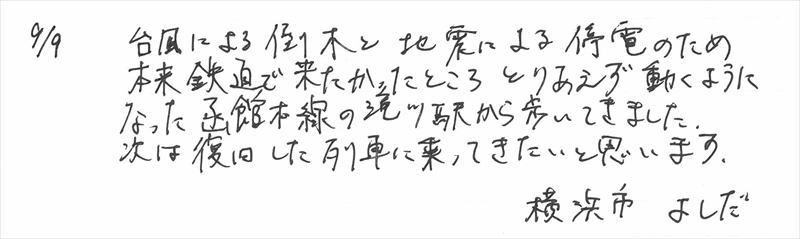 9/9 台風による倒木と地震による停電のため
本来鉄道で来たかったところとりあえず動くように
なった函館本線の滝川駅から歩いてきました.
次は復旧した列車に乗ってきたいと思います.
横浜市 よしだ